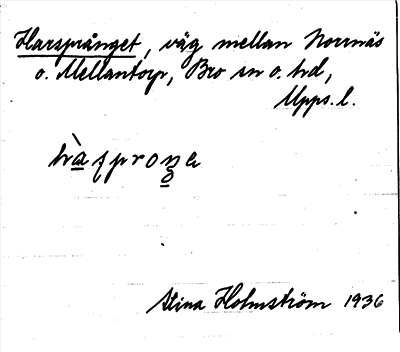 Harsprånget, väg mellan Norrnäs
o. Mellantorp, Bro sn o. hd,
Upps. l.
Stina Holmström 1936